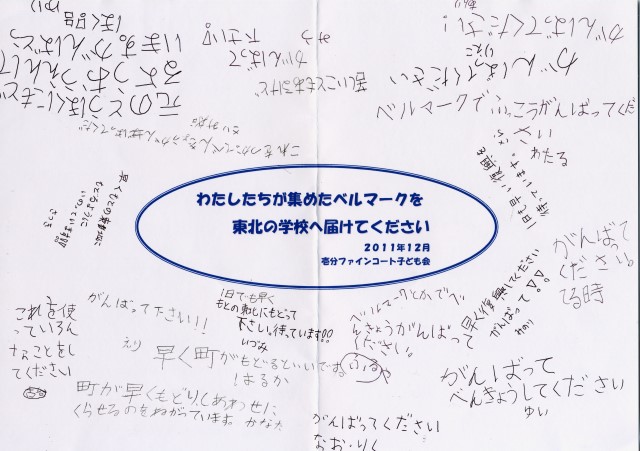 わたしたちが集めたベルマークを
東北の学校へ届けてください
2011年12月
壱分ファインコート子ども会
元のとうほくにもど
るようおうえんして
います。がんばろ
がんばって
下さい!?
がんばってください!
がんばってください
ベルマークで ふっこうがんばってくだ
さい
わたる
がんばって
ください。
早く復興してください
がんばって
これを使
っていろん
なことをし
てください
がんばって下さい!!
えり
1日でも早く
もとの東北にもどって
下さい。待っています!!
いづみ
早く町がもどるといいですね
はるか
町が早くもどり、しあわせに
くらせるのをねがっています かなた
ベルマークとかでべ
んきょうがんばって
ください。
がんばって
べんきょうしてください
ゆい
がんばってください
なお・りく